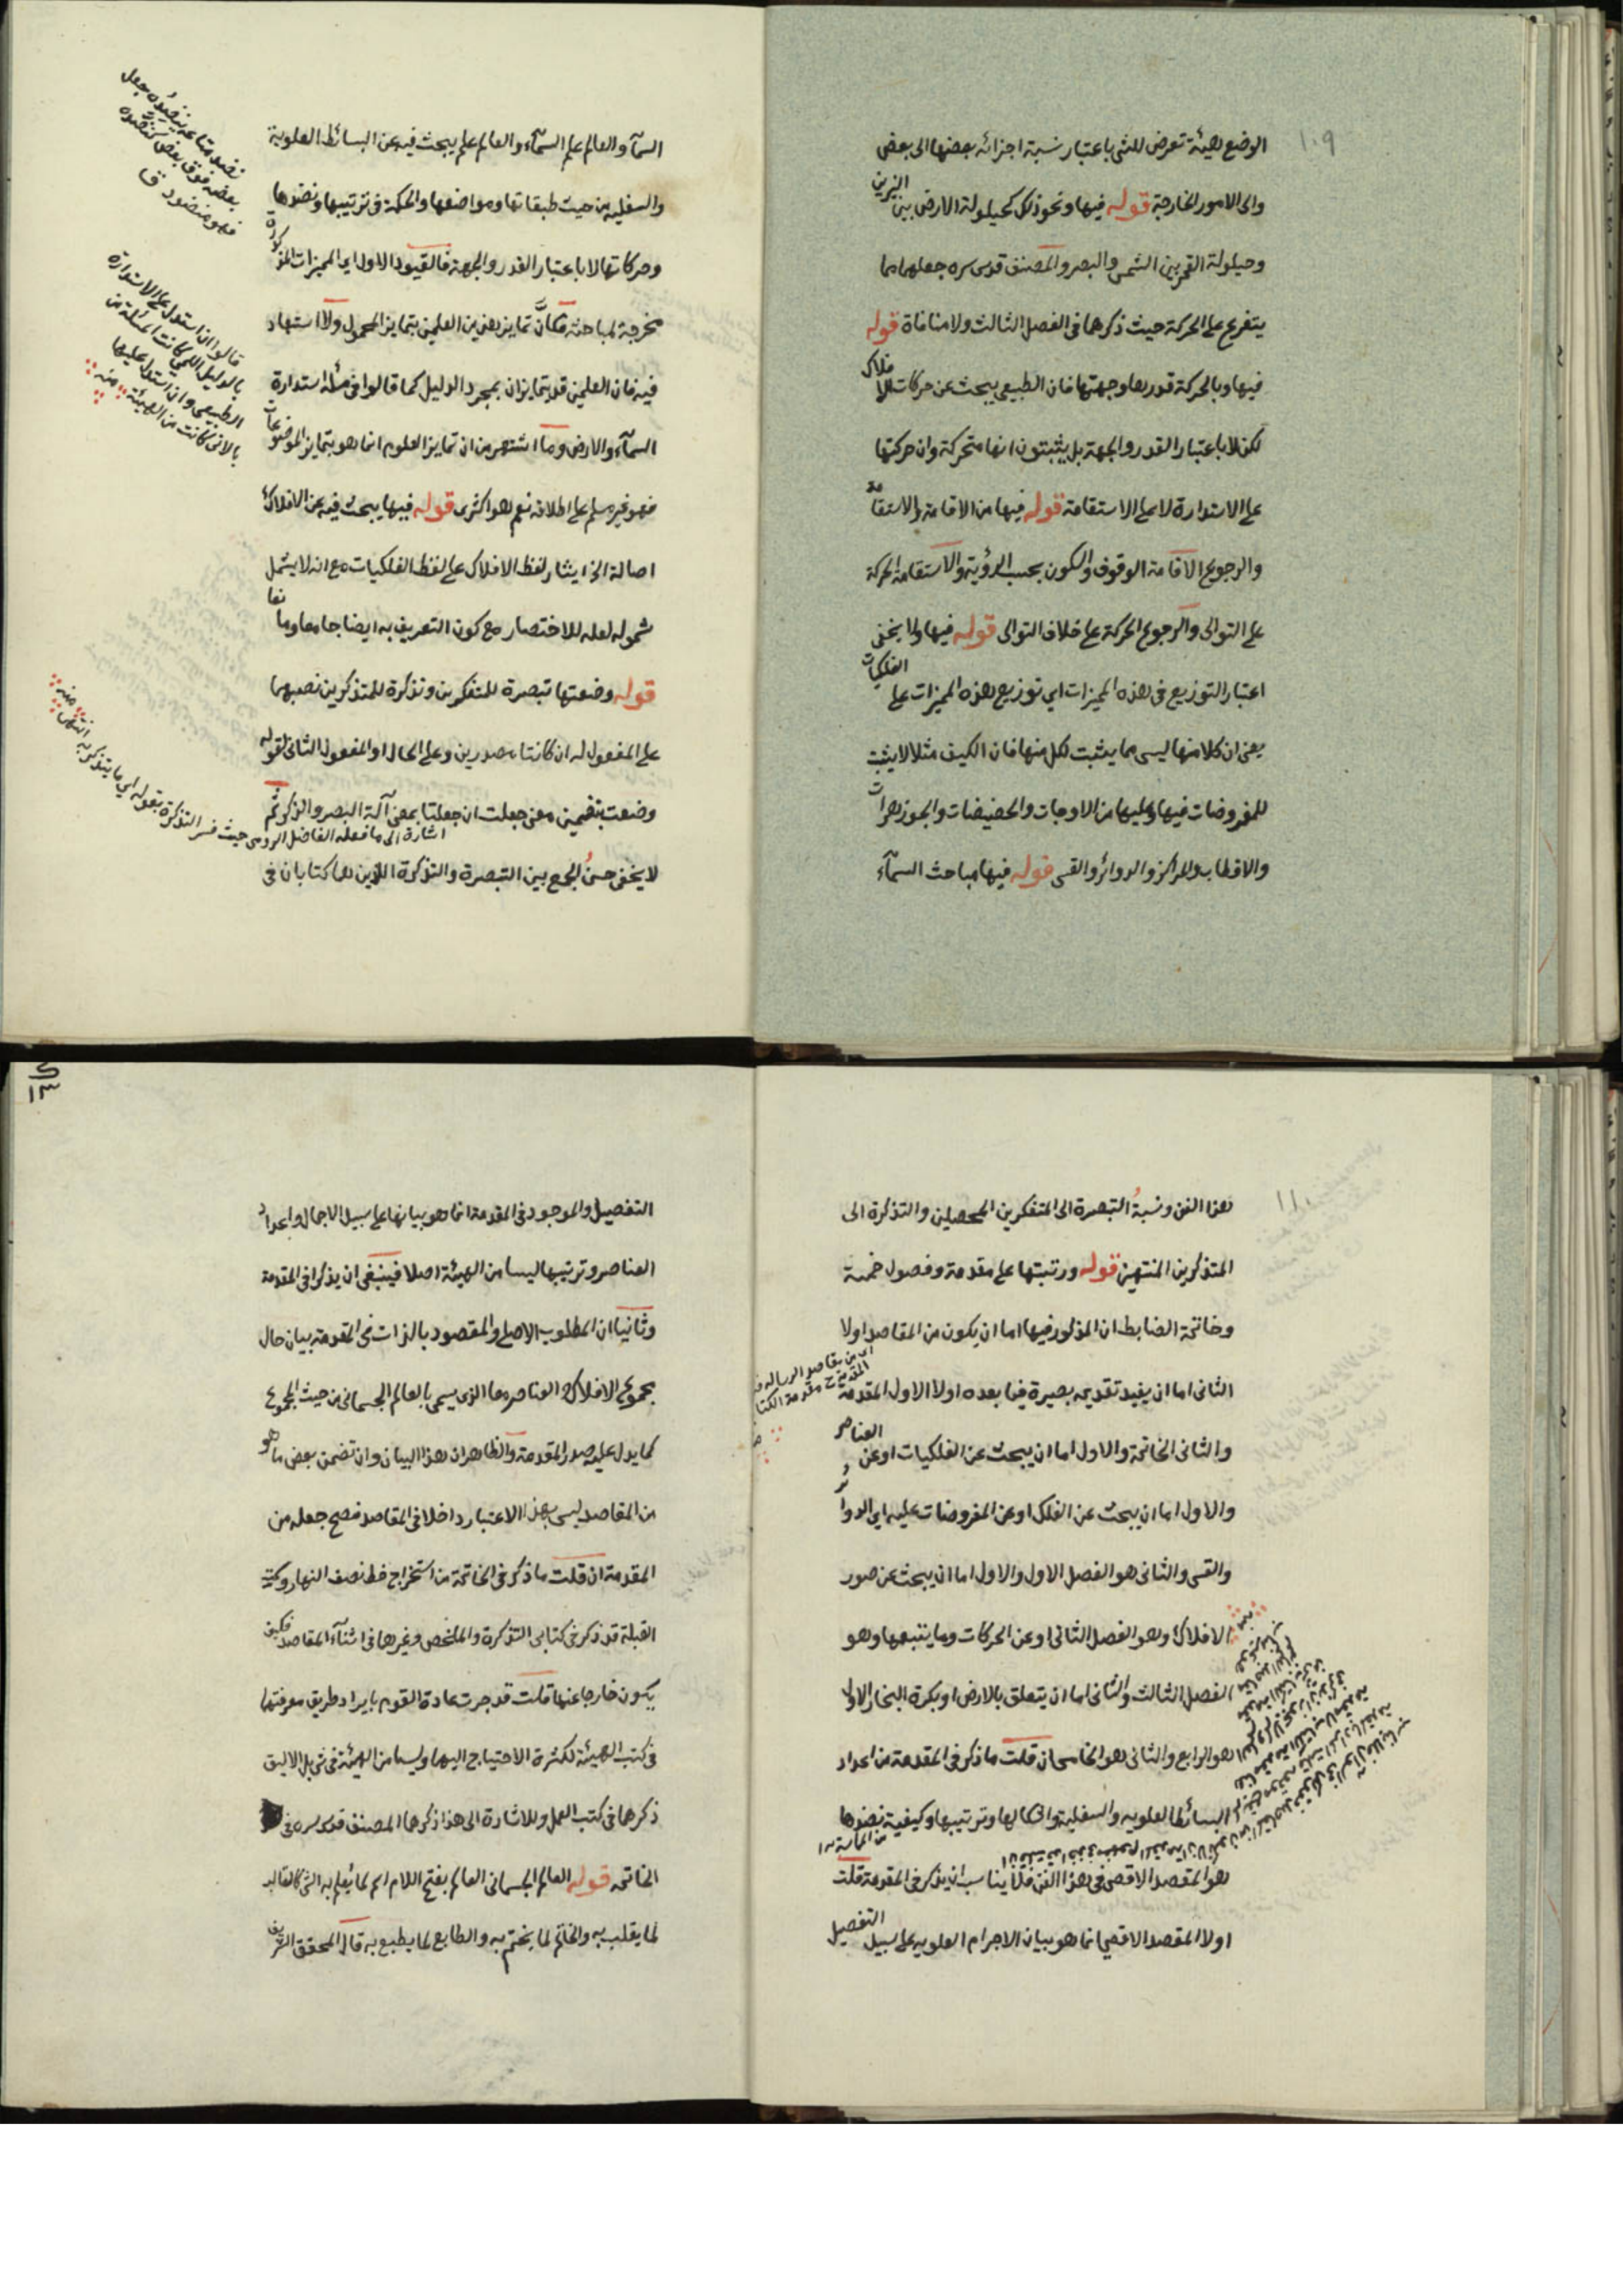 ١٠٩
الوضع هيئة تعرض للشئ باعتبار نسبة اجزائه بعضها الى بعض
والى الامور الخارجة قوله فيها ونحو ذلك كحيلولة الارض بين النيرين
وحيلولة القمر بين الشمس والبصر والمصنف قدس سره جعلهما مما
يتفرع على الحركة حيث ذكرهما فى الفصل الثالث ولا منافاة قوله
فيها وبالحركة قدرها وجهتها فان الطبيعى يبحث عن حركات الافلاك
لكن لا باعتبار القدر والجهة بل يثبتون انها متحركة وان حركتها
على الاستدارة لا على الاستقامة قوله فيها من الاقامة والاستقامة
والرجوع الاقامة الوقوف والسكون بحسب الرؤية والاستقامة الحركة
على التوالى والرجوع الحركة على خلاف التوالى قوله فيها ولا يخفى
اعتبار التوزيع فى هذه المميزات اى توزيع هذه المميزات على الفلكيات
يعنى ان كلا منها ليس مما يثبت لكل منها فان الكيف مثلا لا يثبت
للمفروضات فيها وعليها من الاوجات والحضيضات والجوزهرات
والاقطاب والمراكز والدوائر والقسى قوله فيها مباحث السمآء
السمآء والعالم علم السمآء والعالم علم يبحث فيه عن البسائط العلوية
والسفلية من حيث طبقاتها ومواضعها والحكمة فى ترتيبها ونضدها
وحركاتها لا باعتبار القدر والجهة فالقيود الاول اى المميزات المذكورة
مخرجة لمباحثه فكانّ تمايز بعض من العلمين بتمايز المحمول ولا استبعاد
فيه فان العلمين قد يتمايزان بمجرد الدليل كما قالوا فى مسئلة استدارة
السمآء والارض وما اشتهر من ان تمايز العلوم انما هو بتمايز الموضوعات
فهو غير مسلم على اطلاقه نعم هو اكثرى قوله فيها يبحث فيه عن الافلاك
اصالة الخ ايثار لفظ الافلاك على لفظ الفلكيات مع انه لا يشمل
شموله لعله للاختصار مع كون التعريف به ايضا جامعا ومانعا
قوله وضعتها تبصرة للمتفكرين وتذكرة للمتذكرين نصبهما
على المفعول له ان كانتا مصدرين وعلى الحال او المفعول الثانى لقوله
وضعت بتضمين معنى جعلت ان جعلتا بمعنى آلة البصر والذكر ثم
لا يخفى حسن الجمع بين التبصرة والتذكرة اللذين هما كتابان فى
نضد متاعه ينضده جعل
بعضه فوق بعض كنضده
فهو منضود ق
قالوا ان استدل على الاستدارة
بالدليل اللمى كانت المسئلة من
الطبيعى وان استدل عليها
بالانى كانت من الهيئة منه
اشارة الى ما فعله الفاضل الرومى حيث فسر التذكرة بقوله اى ما يتذكر به انتهى منه
١١٠
هذا الفن ونسبة التبصرة الى المتفكرين المحصلين والتذكرة الى
المتذكرين المنتهين قوله ورتبتها على مقدمة وفصول خمسة
وخاتمة الضابط ان المذكور فيها اما ان يكون من المقاصد اولا
الثانى اما ان يفيد تقديمه بصيرة فيما بعده اولا الاول المقدمة
والثانى الخاتمة والاول اما ان يبحث عن الفلكيات او عن العناصر
والاول اما ان يبحث عن الفلك او عن المفروضات عليه اى الدوائر
والقسى والثانى هو الفصل الاول والاول اما ان يبحث عن صور
الافلاك وهو الفصل الثانى او عن الحركات وما يتبعها وهو
الفصل الثالث والثانى اما ان يتعلق بالارض او بكرة البخار الاول
هو الرابع والثانى هو الخامس ان قلت ما ذكر فى المقدمة من اعداد
البسائط العلوية والسفلية واشكالها وترتيبها وكيفية نضدها
هو المقصد الاقصى فى هذا الفن فلا يناسب ان يذكر فى المقدمة قلت
اولا المقصد الاقصى انما هو بيان الاجرام العلوية على سبيل التفصيل
التفصيل والموجود فى المقدمة انما هو بيانها على سبيل الاجمال واعداد
العناصر وترتيبها ليسا من الهيئة اصلا فينبغى ان يذكرا فى المقدمة
وثانيا ان المطلوب الاصلى والمقصود بالذات فى المقدمة بيان حال
مجموع الافلاك والعناصر معا الذى يسمى بالعالم الجسمانى من حيث المجموع
كما يدل عليه صدر المقدمة والظاهر ان هذا البيان وان تضمن بعض ما هو
من المقاصد ليس بهذا الاعتبار داخلا فى المقاصد فصح جعله من
المقدمة ان قلت ما ذكر فى الخاتمة من استخراج خط نصف النهار وسمت
القبلة قد ذكر فى كتابى التذكرة والملخص وغيرهما فى اثنآء المقاصد فكيف
يكون خارجا عنها قلت قد جرت عادة القوم بايراد طريق معرفتها
فى كتب الهيئة لكثرة الاحتياج اليها وليسا من الهيئة فى شئ بل الاليق
ذكرهما فى كتب العمل وللاشارة الى هذا ذكرهما المصنف قدس سره فى
الخاتمة قوله العالم الجسمانى العالم بفتح اللام اسم لما يعلم به الشئ كالقالب
لما يقلب به والخاتم لما يختم به والطابع لما يطبع به قال المحقق الشريف